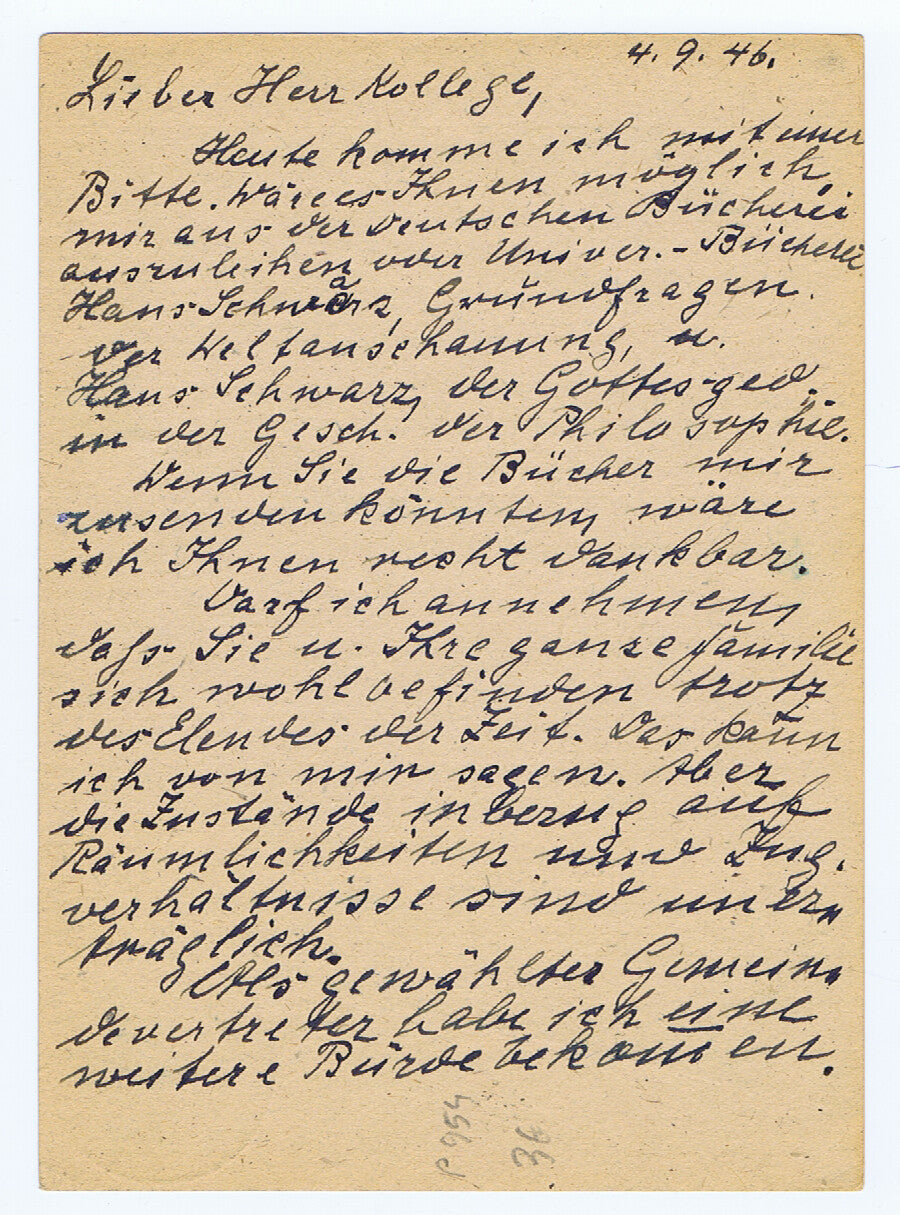 4. 9. 46.
Lieber Herr Kollege,
Heute komme ich mit einer
Bitte. Wäre es Ihnen möglich,
mir aus der Deutschen Bücherei
auszuleihen oder Univer.-Bücherei
Hans Schwarz, Grundfragen
der Weltanschauung, u.
Hans Schwarz, der Gottesged.
in der Gesch. der Philosophie.
Wenn Sie die Bücher mir
zusenden könnten, wäre
ich Ihnen recht dankbar.
Darf ich annehmen,
dass Sie u. Ihre ganze Familie
sich wohl befinden trotz
des Elendes der Zeit. Das kann
ich von mir sagen. Aber
die Zustände in bezug auf
Räumlichkeiten und Zug-
verhältnisse sind uner-
träglich.
Als gewählter Gemein-
devertreter habe ich eine
weitere Bürde bekom̅en.
P 954
36